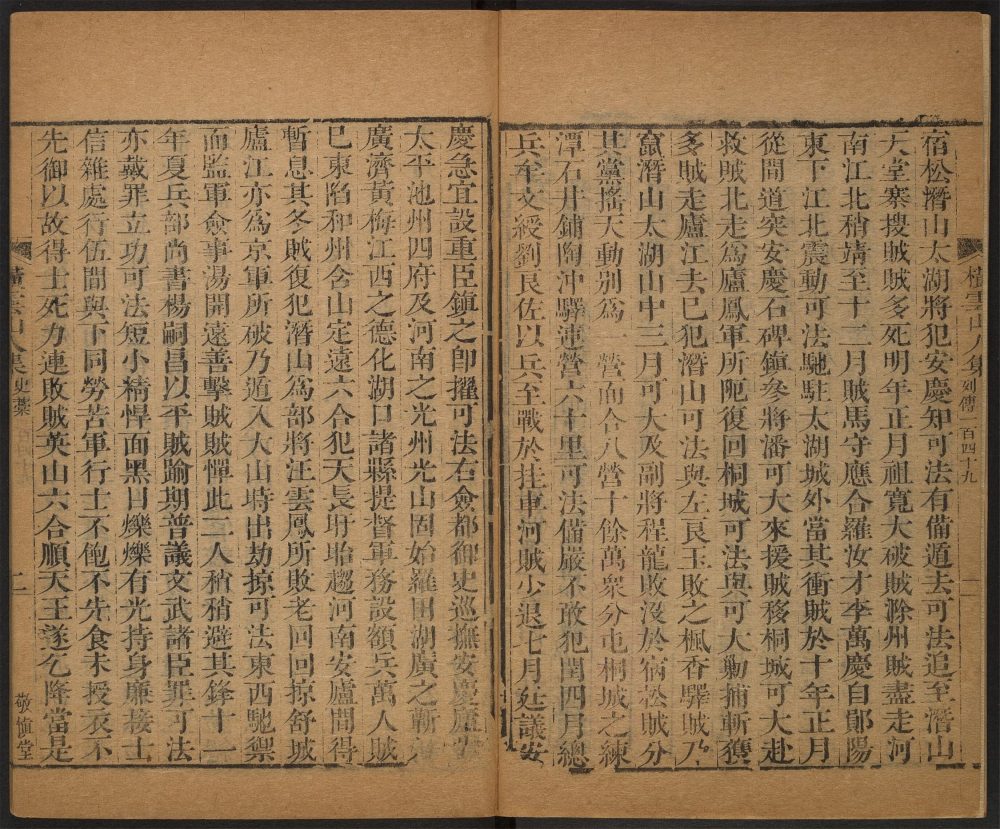 橫雲山人集 列傳 一百四十九 一
宿松潛山太湖將犯安慶知可法有備遁去可法追至潛山
天堂寨搜賊賊多死明年正月祖寬大破賊滁州賊盡走河
南江北稍靖至十二月賊馬守應合羅汝才李萬慶自鄖陽
東下江北震動可法馳駐太湖城外當其衝賊於十年正月
從間道突安慶石碑鎮參將潘可大來援賊移桐城可大赴
救賊北走爲廬鳳軍所阨復回桐城可法與可大勦捕斬獲
多賊走廬江去已犯潛山可法與左良玉敗之楓香驛賊乃
竄潛山太湖山中三月可大及副將程龍敗沒於宿松賊分
其黨搖天動別爲一營而合八營十餘萬衆分屯桐城之練
潭石井鋪陶沖驛連營六十里可法備嚴不敢犯閏四月總
兵牟文綬劉良佐以兵至戰於挂車河賊少退七月廷議安
慶急宜設重臣鎮之卽擢可法右僉都御史巡撫安慶廬州
太平池州四府及河南之光州光山固始羅田湖廣之蘄州
廣濟黃梅江西之德化湖口諸縣提督軍務設額兵萬人賊
巳東陷和州含山定遠六合犯天長盱眙趨河南安廬間得
暫息其冬賊復犯潛山爲部將汪雲鳳所敗老回回掠舒城
廬江亦爲京軍所破乃遁入大山時出劫掠可法東西馳禦
而監軍僉事湯開遠善擊賊賊憚此二人稍稍避其鋒十一
年夏兵部尚書楊嗣昌以平賊踰期普議文武諸臣罪可法
亦戴罪立功可法短小精悍面黑目爍爍有光持身廉接士
信雜處行伍間與下同勞苦軍行士不飽不先食未授衣不
先御以故得士死力連敗賊英山六合順天王遂乞降當是
橫雲山人集 史藁 二 敬愼堂